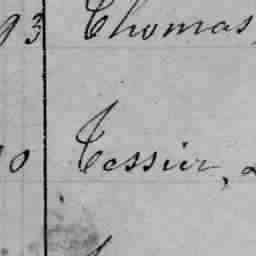 93 Thomas,
0 Tessier,